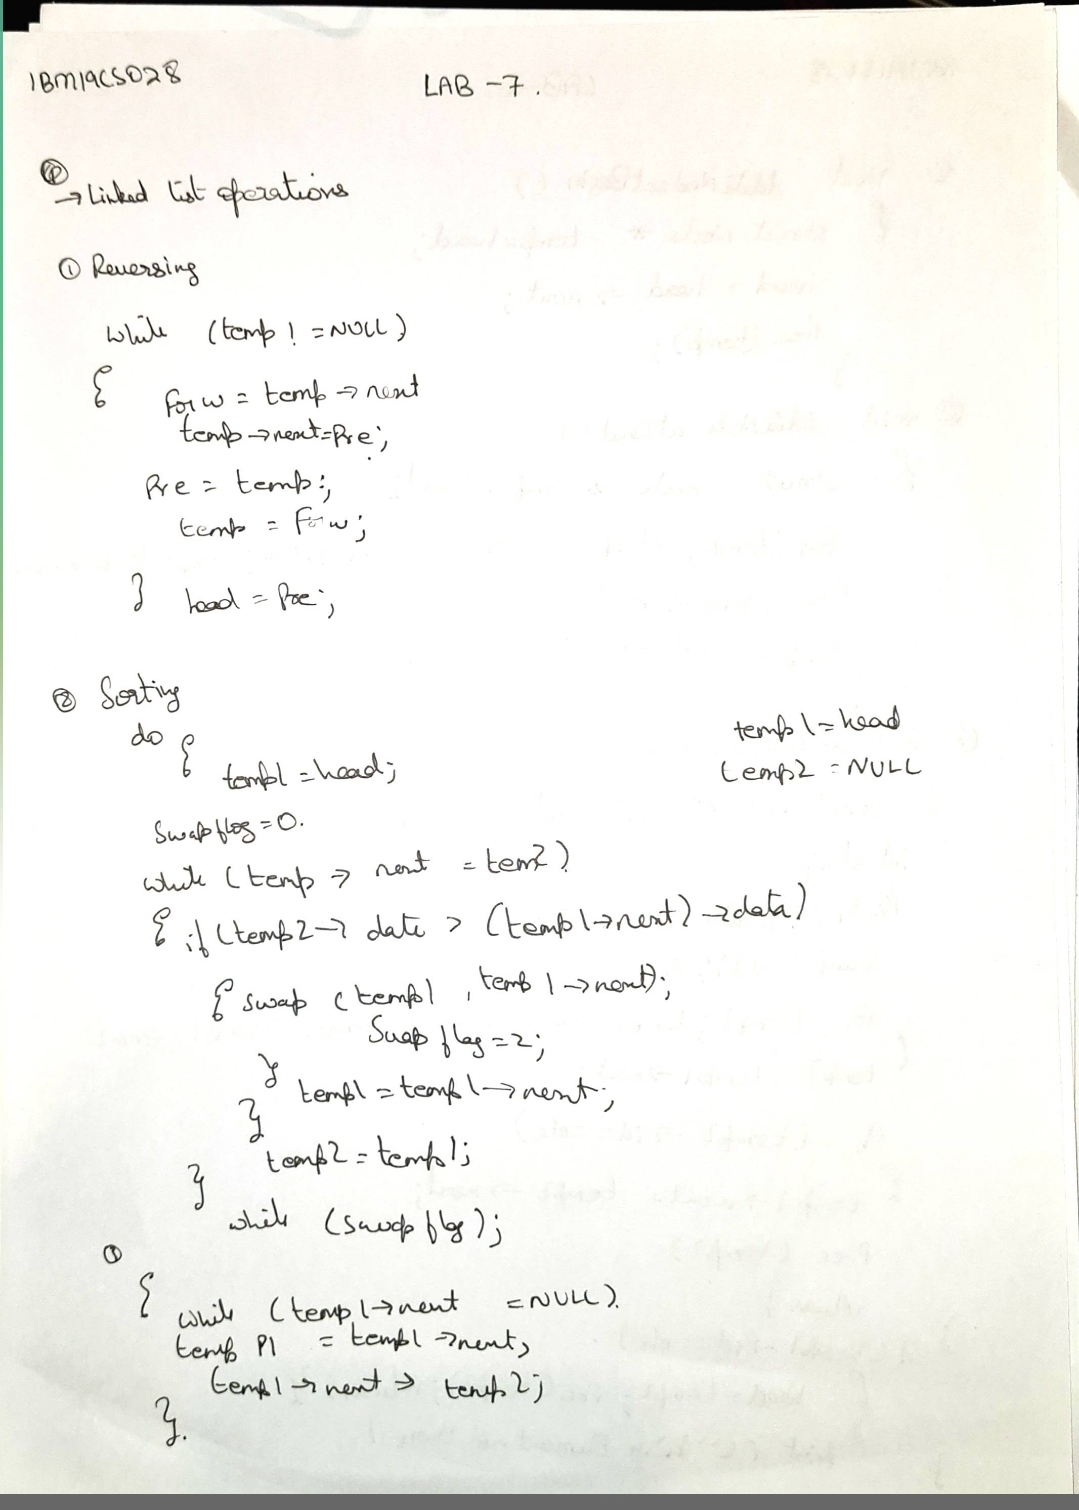 1BM19CS028
LAB -7.
→ Linked list operations
① Reversing
while (temp ! = NULL)
{ forw = temp → next
temp → next = Pre;
Pre = temp;
temp = forw;
} head = Pre;
② Sorting
do {
temp1 = head
temp2 = NULL
temp1 = head;
Swapflag = 0.
while (temp → next = tem2)
{ if (temp2 → date > (temp1 → next) → data)
{ swap (temp1 , temp 1 → next);
Swap flag = 2;
} temp1 = temp1 → next;
}
temp2 = temp1;
}
while (swap flag);
③
{ while (temp1 → next = NULL).
temp P1 = temp1 → next,
temp1 → next → temp2;
}.